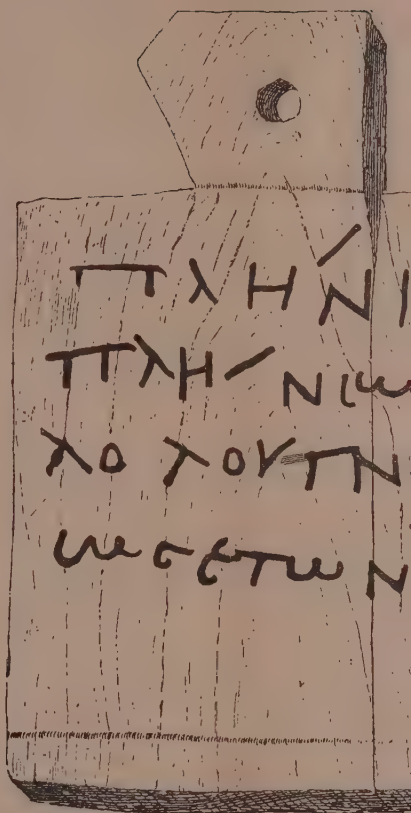 ΠλΗΝΙ
ΠλΗΝιω
λολουΠΝ
ωσετωΝ